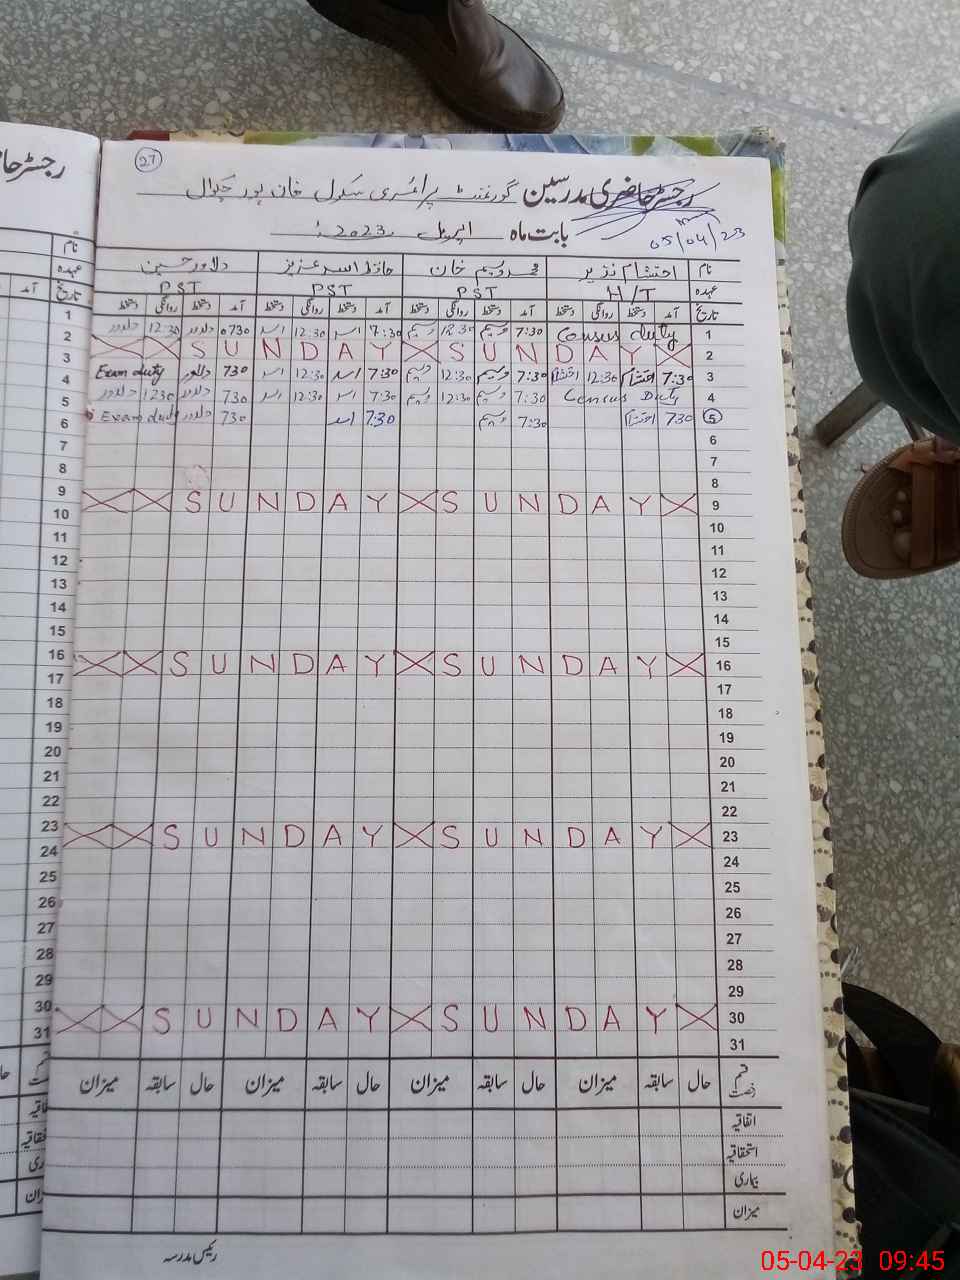 رجسٹر حاضری
27
رجسٹر حاضری مدرسین گورنمنٹ پرائمری سکول خان پور چکوال
بابت ماہ اپریل 2023ء
05/04/23
نام احتشام نذیر محمد وسیم خان حافظ اسد عزیز دلاور حسین
عہدہ H/T PST PST PST
تاریخ آمد دستخط روانگی دستخط آمد دستخط روانگی دستخط آمد دستخط روانگی دستخط آمد دستخط روانگی دستخط
1 Census duty 7:30 وسیم 12:30 وسیم 7:30 اسد 12:30 اسد 0730 دلاور 12:30 دلاور
2 SUNDAY SUNDAY
3 7:30 احتشام 12:30 احتشام 7:30 وسیم 12:30 وسیم 7:30 اسد 12:30 اسد 730 دلاور Exam duty
4 Census Duty 7:30 وسیم 12:30 وسیم 7:30 اسد 12:30 اسد 730 دلاور 1230 دلاور
5 730 احتشام 7:30 وسیم 7:30 اسد 730 دلاور Exam duty
6
7
8
9 SUNDAY SUNDAY
10
11
12
13
14
15
16 SUNDAY SUNDAY
17
18
19
20
21
22
23 SUNDAY SUNDAY
24
25
26
27
28
29
30 SUNDAY SUNDAY
31
قسم رخصت حال سابقہ میزان حال سابقہ میزان حال سابقہ میزان حال سابقہ میزان
اتفاقیہ
استحقاقیہ
بیماری
میزان
رئیس مدرسہ
05-04-23 09:45